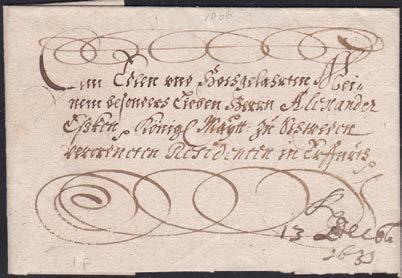 1006
Dem Edlen und Hochgelahrten Mei-
nem besonders Lieben Herrn Alexander
Eßken Königl Maytt: zu Schweden
verordneten Residenten in Erfurdt
13 Decb
1633